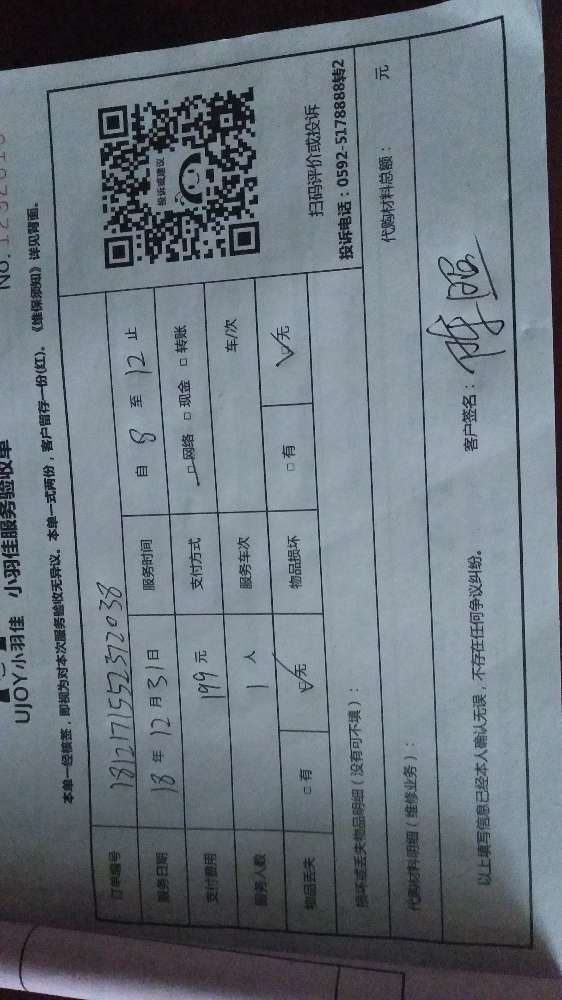 UJOY小羽佳 小羽佳服务验收单
本单一经核签，即视为对本次服务验收无异议。本单一式两份，客户留存一份(红)。《维保须知》详见背面。
订单编号 1812171552372038
服务日期 18年12月31日 服务时间 自8至12止
支付费用 199元 支付方式 □网络 □现金 □转账
服务人数 1人 服务车次 车/次
物品丢失 □有 ☑无 物品损坏 □有 ☑无
投诉或建议
扫码评价或投诉
投诉电话：0592-5178888转2
损坏或丢失物品明细（没有可不填）：
代购材料明细（维修业务）： 代购材料总额： 元
以上填写信息已经本人确认无误，不存在任何争议纠纷。 客户签名：